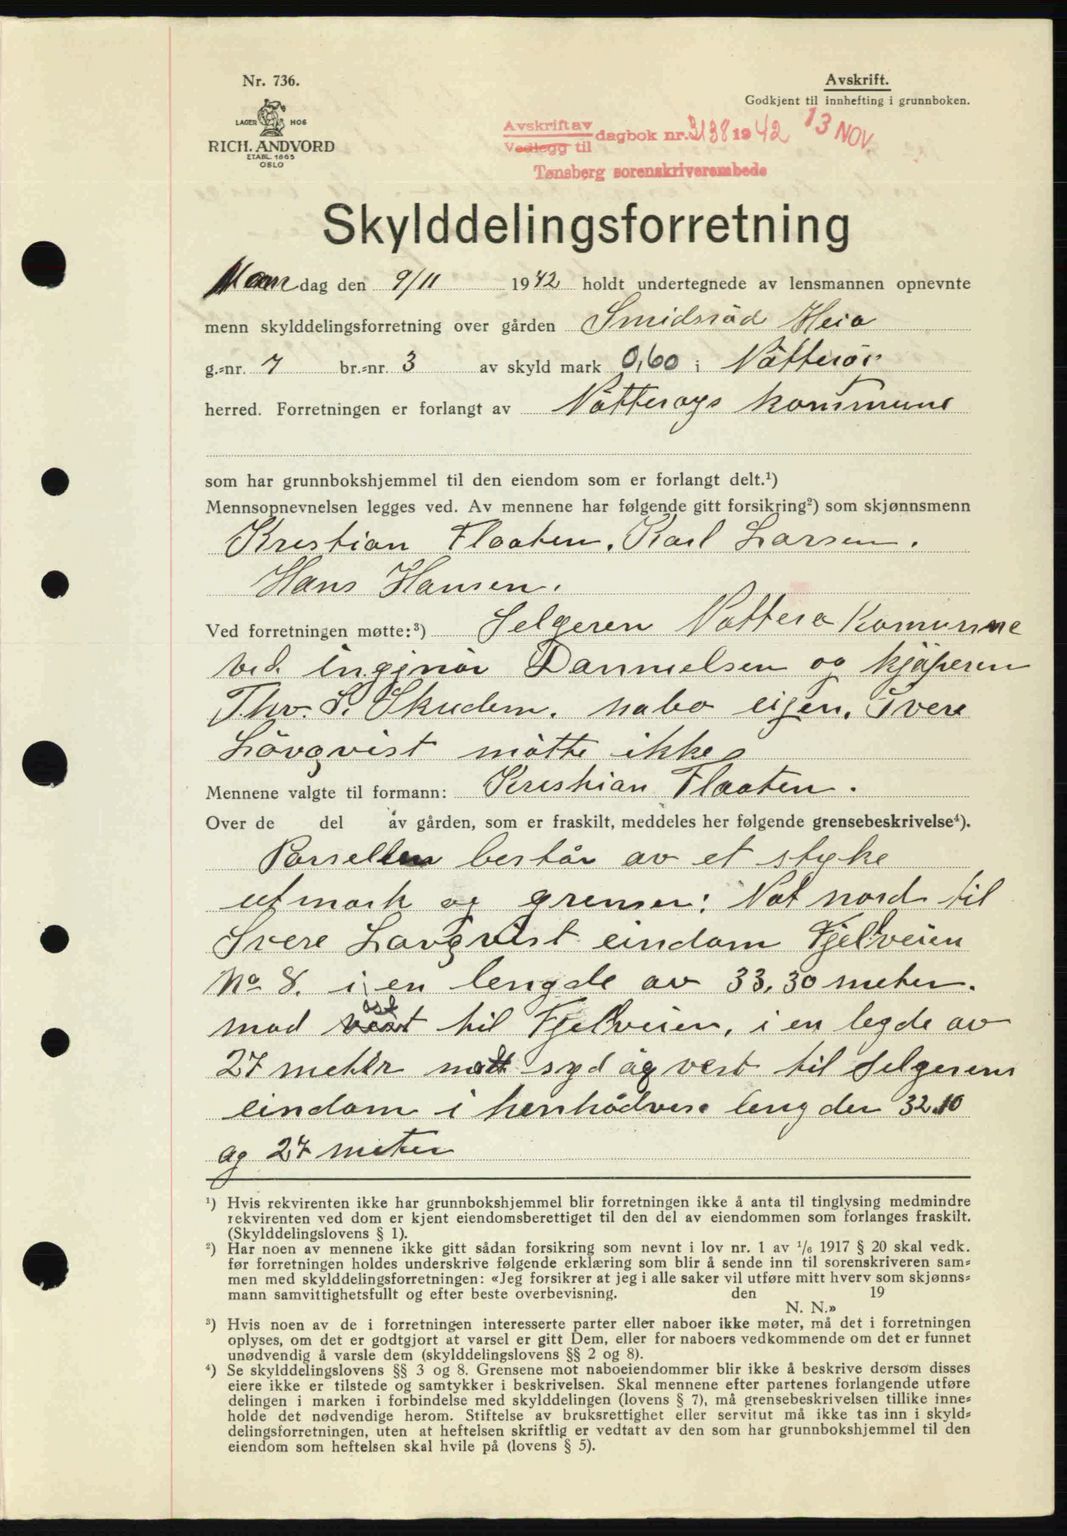 Nr. 736.
LAGER HOS
RICH. ANDVORD
ETABL. 1865
OSLO
Avskrift.
Godkjent til innhefting i grunnboken.
Avskrift av
Vedlegg til dagbok nr. 3138 1942 13 NOV.
Tønsberg sorenskriverembede
Skylddelingsforretning
Man dag den 9/11 1942 holdt undertegnede av lensmannen opnevnte
menn skylddelingsforretning over gården Smidsröd Heia
g.-nr. 7 br.-nr. 3 av skyld mark 0,60 i Nötteröy
herred. Forretningen er forlangt av Nötteröys kommune
som har grunnbokshjemmel til den eiendom som er forlangt delt.¹)
Mennsopnevnelsen legges ved. Av mennene har følgende gitt forsikring²) som skjønnsmenn
Kristian Flaaten. Karl Larsen.
Hans Hansen.
Ved forretningen møtte:³) Selgeren Nötterö Komunne
ved ingjnör Dannielsen og kjöperen
Thv. S. Skudem. nabo eigen. Svere
Lövqvist mötte ikke
Mennene valgte til formann: Kristian Flaaten.
Over de del av gården, som er fraskilt, meddeles her følgende grensebeskrivelse⁴).
Parsellen består av et styke
utmark og grenser: Not nord til
Svere Lövqvist eindom Fjellveien
No 8. i en lengde av 33,30 meter.
mod öst til Fjellveien, i en legde av
27 meter mott syd åg vest til selgerens
eindom i henhödvise lengder 32.10
ag 27 meter
¹) Hvis rekvirenten ikke har grunnbokshjemmel blir forretningen ikke å anta til tinglysing medmindre
rekvirenten ved dom er kjent eiendomsberettiget til den del av eiendommen som forlanges fraskilt.
(Skylddelingslovens § 1).
²) Har noen av mennene ikke gitt sådan forsikring som nevnt i lov nr. 1 av 1/6 1917 § 20 skal vedk.
før forretningen holdes underskrive følgende erklæring som blir å sende inn til sorenskriveren sam-
men med skylddelingsforretningen: «Jeg forsikrer at jeg i alle saker vil utføre mitt hverv som skjønns-
mann samvittighetsfullt og efter beste overbevisning. den 19
N. N.»
³) Hvis noen av de i forretningen interesserte parter eller naboer ikke møter, må det i forretningen
oplyses, om det er godtgjort at varsel er gitt Dem, eller for naboers vedkommende om det er funnet
unødvendig å varsle dem (skylddelingslovens §§ 2 og 8).
⁴) Se skylddelingslovens §§ 3 og 8. Grensene mot naboeiendommer blir ikke å beskrive dersom disses
eiere ikke er tilstede og samtykker i beskrivelsen. Skal mennene efter partenes forlangende utføre
delingen i marken i forbindelse med skylddelingen (lovens § 7), må grensebeskrivelsen tillike inne-
holde det nødvendige herom. Stiftelse av bruksrettighet eller servitut må ikke tas inn i skyld-
delingsforretningen, uten at heftelsen skriftlig er vedtatt av den som har grunnbokshjemmel til den
eiendom som heftelsen skal hvile på (lovens § 5).